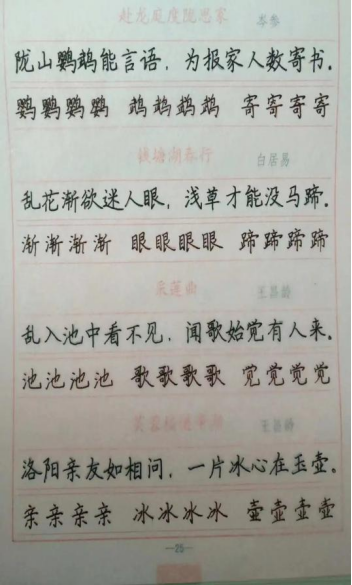 赴北庭度陇思家 岑参
陇山鹦鹉能言语，为报家人数寄书。
鹦鹦鹦鹦 鹉鹉鹉鹉 寄寄寄寄
钱塘湖春行 白居易
乱花渐欲迷人眼，浅草才能没马蹄。
渐渐渐渐 眼眼眼眼 蹄蹄蹄蹄
采莲曲 王昌龄
乱入池中看不见，闻歌始觉有人来。
池池池池 歌歌歌歌 觉觉觉觉
芙蓉楼送辛渐 王昌龄
洛阳亲友如相问，一片冰心在玉壶。
亲亲亲亲 冰冰冰冰 壶壶壶壶
—25—